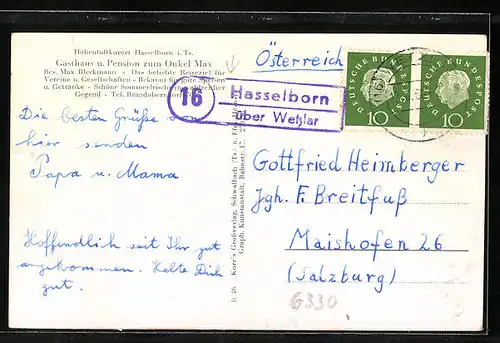 Höhenluftkurort Hasselborn i. Ts.
Gasthaus u. Pension zum Onkel Max
Bes. Max Bleckmann - Das beliebte Reiseziel für
Vereine u. Gesellschaften - Bekannt für gute Speisen
u. Getränke - Schöne Sommerfrische in waldreicher
Gegend - Tel. Brandoberndorf
Österreich
16
Hasselborn
über Wetzlar
DEUTSCHE BUNDESPOST
10
DEUTSCHE BUNDESPOST
10
Die besten Grüße von
hier senden
Papa u. Mama
Hoffendlich seit Ihr gut
angekommen. Halte Dich
gut.
h 26 Korr's Großverlag, Schwalbach (Ts.) u.
Graph. Kunstanstalt, Bahnstr. 17,
Gottfried Heimberger
Jgh. F. Breitfuß
Maishofen 26
(Salzburg)
G330